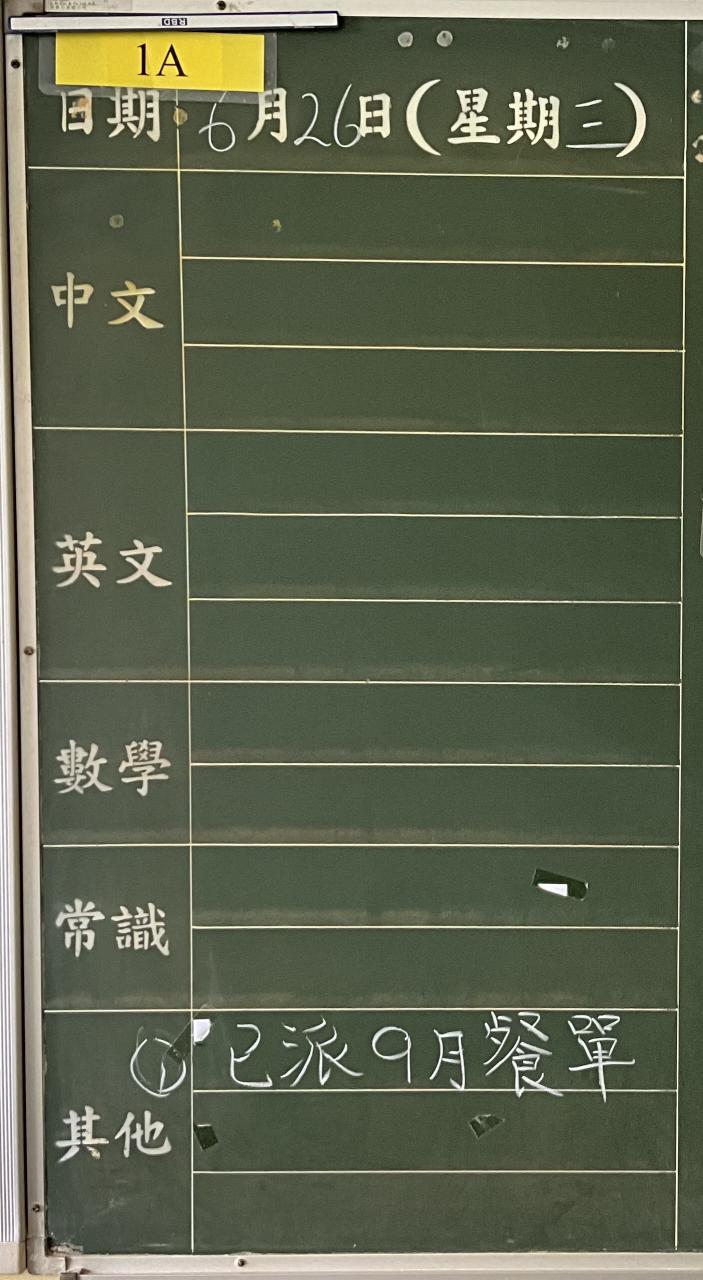 RBD
1A
日期 6月26日(星期三)
中文
英文
數學
常識
① 已派9月餐單
其他